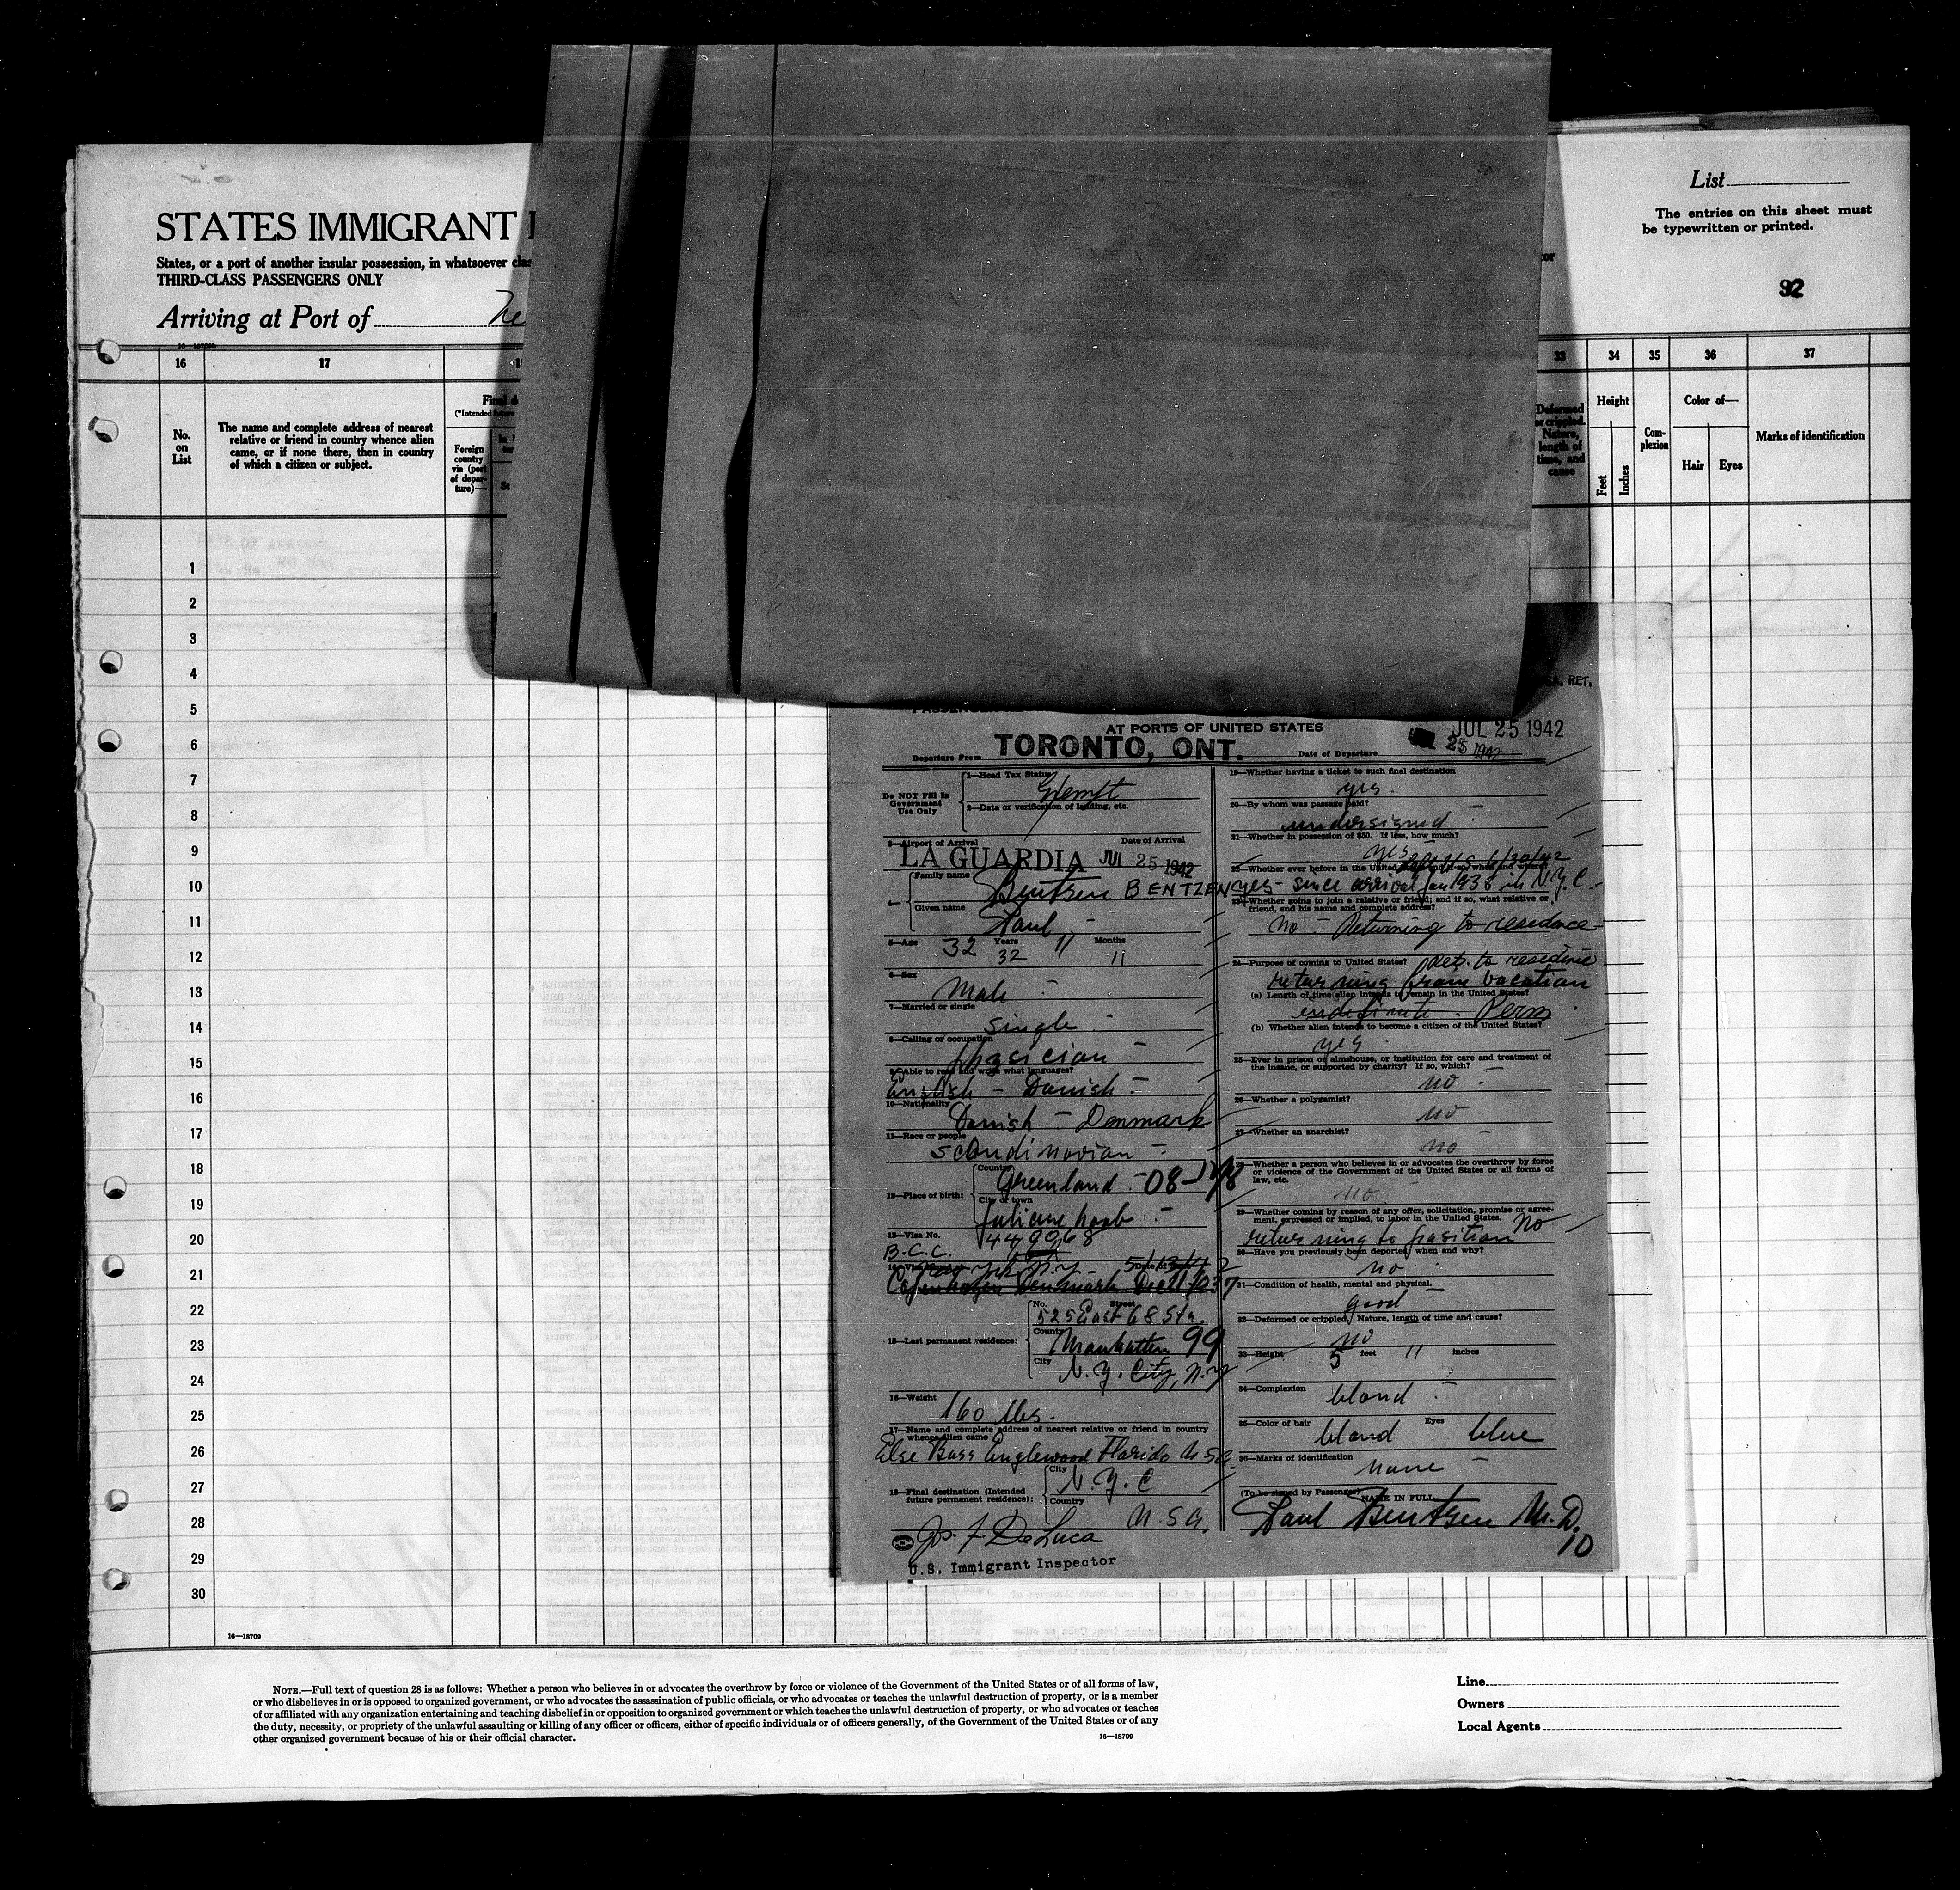 STATES IMMIGRANT
States, or a port of another insular possession, in whatsoever
THIRD-CLASS PASSENGERS ONLY
Arriving at Port of
List
The entries on this sheet must
be typewritten or printed.
92
16 17 33 34 35 36 37
No.
on
List
The name and complete address of nearest
relative or friend in country whence alien
came, or if none there, then in country
of which a citizen or subject.
Foreign
country
via (port
of depar-
ture)—
Deformed
or crippled.
Nature,
length of
time, and
cause
Height
Feet
Inches
Com-
plexion
Color of—
Hair Eyes
Marks of identification
1
2
3
4
5
6
7
8
9
10
11
12
13
14
15
16
17
18
19
20
21
22
23
24
25
26
27
28
29
30
16—18709
RET.
AT PORTS OF UNITED STATES
JUL 25 1942
Departure From TORONTO, ONT. Date of Departure 25 1942
Do NOT Fill In
Government
Use Only
1—Head Tax Status
Exempt
2—Data or verification of landing, etc.
3—Airport of Arrival Date of Arrival
LA GUARDIA JUL 25 1942
4—
Family name
Bentzen BENTZEN
Given name
Paul
5—Age 32 Years 11 Months
32 11
6—Sex
Male
7—Married or single
Single
8—Calling or occupation
physician
9—Able to read and write what languages?
English - Danish
10—Nationality
Danish - Denmark
11—Race or people
Scandinavian
12—Place of birth:
Country
Greenland - 08-
City or town
Julianehaab
13—Visa No.
449068
B.C.C.
N.Y.
Copenhagen Denmark Dec 1937
15—Last permanent residence:
No. Street
525 East 68 Str.
County
Manhatten 99
City
N.Y. City, N.Y
16—Weight
160 lbs.
17—Name and complete address of nearest relative or friend in country
whence alien came
Else Bass Englewood Florida USA
18—Final destination (Intended
future permanent residence):
City
N.Y.C
Country
U.S.A.
Jos. F. DeLuca
U.S. Immigrant Inspector
19—Whether having a ticket to such final destination
yes.
20—By whom was passage paid?
undersigned
21—Whether in possession of $50. If less, how much?
yes
6/30/42
22—Whether ever before in the United States
yes - since arrival Jan 1938 in N.Y.C.
23—Whether going to join a relative or friend; and if so, what relative or
friend, and his name and complete address?
No - Returning to residence
24—Purpose of coming to United States? Ret. to residence
returning from vacation
(a) Length of time alien intends to remain in the United States?
indefinite. Perm
(b) Whether alien intends to become a citizen of the United States?
yes
25—Ever in prison or almshouse, or institution for care and treatment of
the insane, or supported by charity? If so, which?
no
26—Whether a polygamist?
no
27—Whether an anarchist?
no
28—Whether a person who believes in or advocates the overthrow by force
or violence of the Government of the United States or all forms of
law, etc.
no
29—Whether coming by reason of any offer, solicitation, promise or agree-
ment, expressed or implied, to labor in the United States. No
returning to position
30—Have you previously been deported, when and why?
no
31—Condition of health, mental and physical.
good
32—Deformed or crippled, Nature, length of time and cause?
no
33—Height 5 feet 11 inches
34—Complexion
blond
35—Color of hair Eyes
blond blue
36—Marks of identification
none
(To be signed by Passenger) NAME IN FULL
Paul Bentzen M.D.
10
NOTE.—Full text of question 28 is as follows: Whether a person who believes in or advocates the overthrow by force or violence of the Government of the United States or of all forms of law,
or who disbelieves in or is opposed to organized government, or who advocates the assassination of public officials, or who advocates or teaches the unlawful destruction of property, or is a member
of or affiliated with any organization entertaining and teaching disbelief in or opposition to organized government or which teaches the unlawful destruction of property, or who advocates or teaches
the duty, necessity, or propriety of the unlawful assaulting or killing of any officer or officers, either of specific individuals or of officers generally, of the Government of the United States or of any
other organized government because of his or their official character.
16—18709
Line
Owners
Local Agents